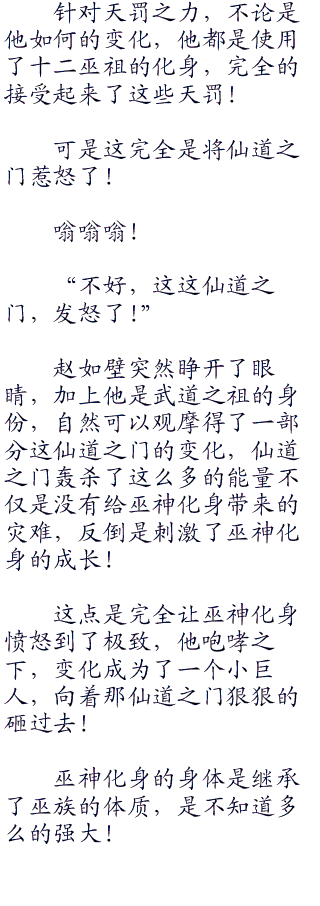 针对天罚之力，不论是
他如何的变化，他都是使用
了十二巫祖的化身，完全的
接受起来了这些天罚！
可是这完全是将仙道之
门惹怒了！
嗡嗡嗡！
“不好，这这仙道之
门，发怒了！”
赵如壁突然睁开了眼
睛，加上他是武道之祖的身
份，自然可以观摩得了一部
分这仙道之门的变化，仙道
之门轰杀了这么多的能量不
仅是没有给巫神化身带来的
灾难，反倒是刺激了巫神化
身的成长！
这点是完全让巫神化身
愤怒到了极致，他咆哮之
下，变化成为了一个小巨
人，向着那仙道之门狠狠的
砸过去！
巫神化身的身体是继承
了巫族的体质，是不知道多
么的强大！